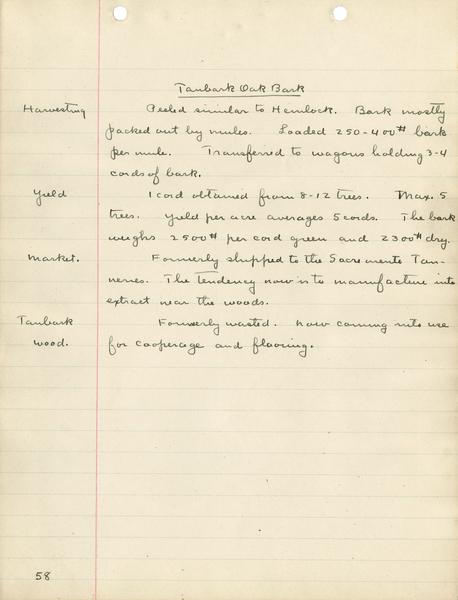 Tanbark Oak Bark
Harvesting Peeled similar to Hemlock. Bark mostly
packed out by mules. Loaded 250-400# bark
per mule. Transferred to wagons holding 3-4
cords of bark.
Yield 1 cord obtained from 8-12 trees. Max. 5
trees. Yield per acre averages 5 cords. The bark
weighs 2500# per cord green and 2300# dry.
Market. Formerly shipped to the Sacramento Tan-
neries. The tendency now is to manufacture into
extract near the woods.
Tanbark Formerly wasted. Now coming into use
wood. for cooperage and flooring.
58